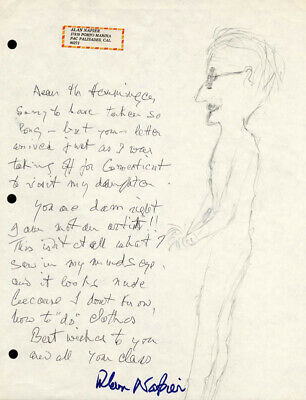 ALAN NAPIER
17919 PORTO MARINA
PAC PALISADES, CAL.
90272
Dear Mr Hemminger,
Sorry to have taken so
long – but your letter
arrived just as I was
taking off for Connecticut
to visit my daughter.
You are damn right
I am not an artist!!
This isn't at all what I
saw in my minds eye
and it looks nude
because I don't know
how to "do" clothes
Best wishes to you
and all your class
Alan Napier